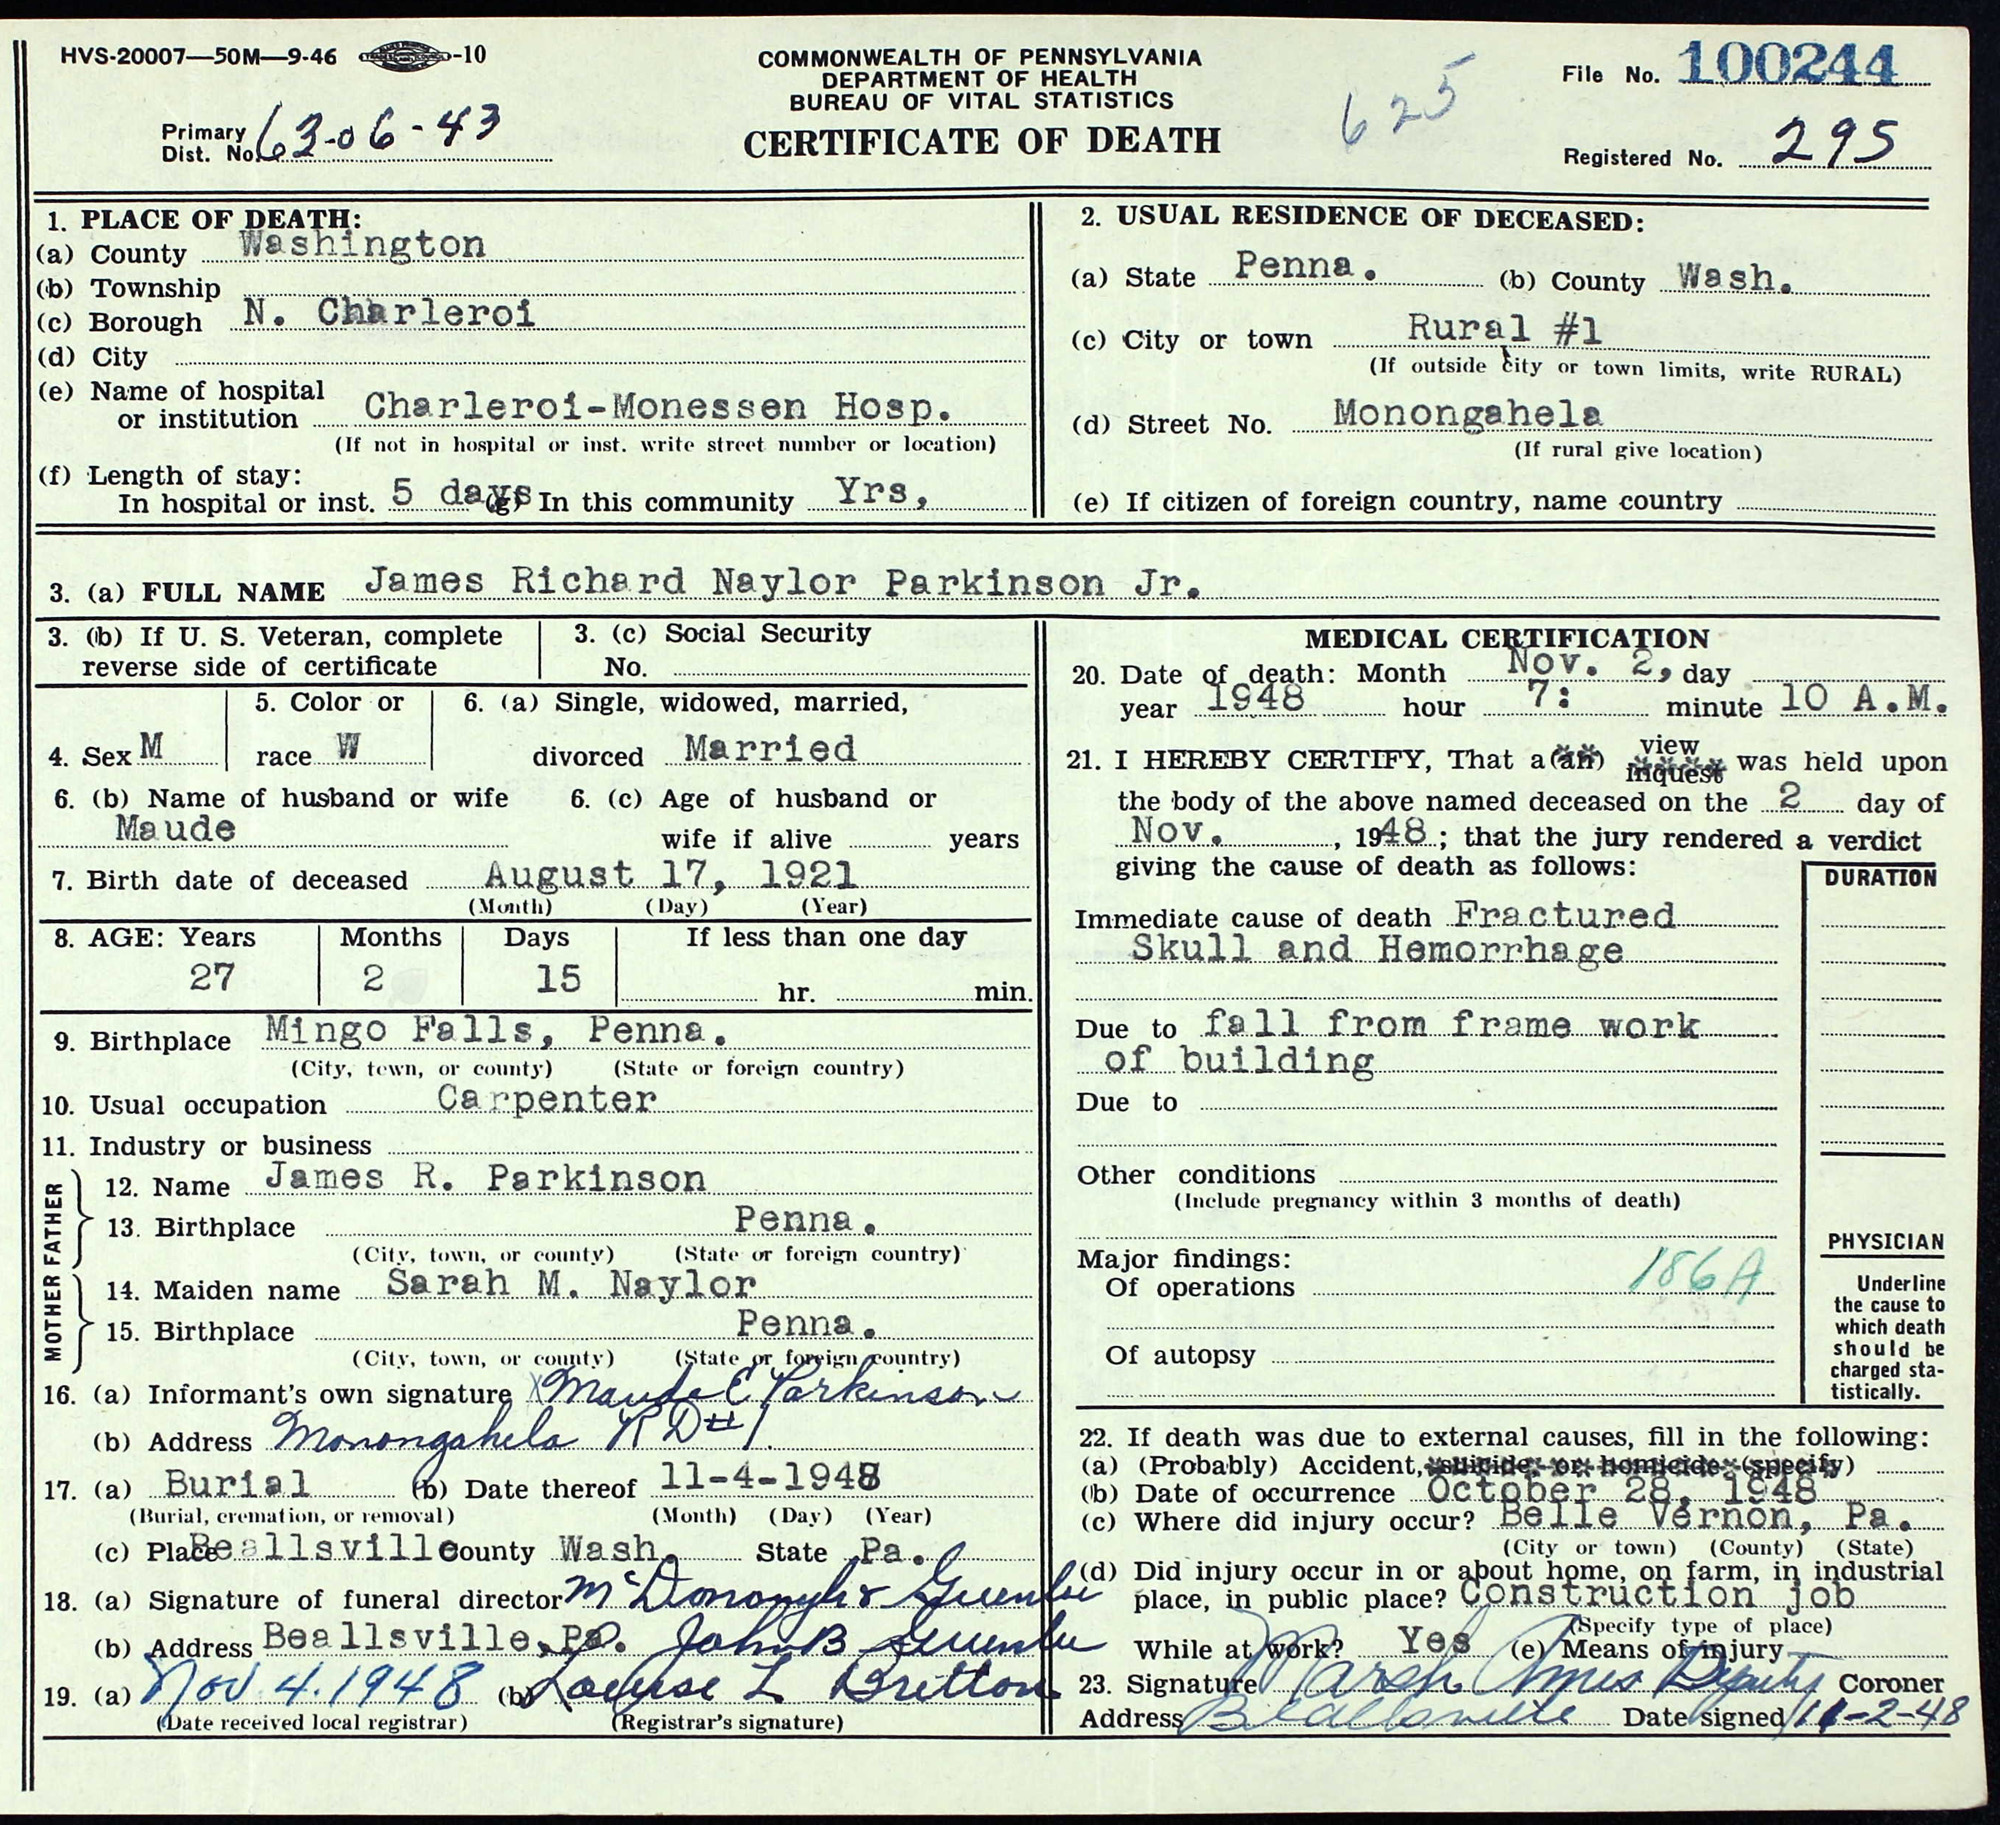 HVS-20007—50M—9-46 -10
COMMONWEALTH OF PENNSYLVANIA
DEPARTMENT OF HEALTH
BUREAU OF VITAL STATISTICS
CERTIFICATE OF DEATH
625
File No. 100244
Primary
Dist. No. 63-06-43
Registered No. 295
1. PLACE OF DEATH:
(a) County Washington
(b) Township
(c) Borough N. Charleroi
(d) City
(e) Name of hospital
or institution Charleroi-Monessen Hosp.
(If not in hospital or inst. write street number or location)
(f) Length of stay:
In hospital or inst. 5 days (g) In this community Yrs,
2. USUAL RESIDENCE OF DECEASED:
(a) State Penna. (b) County Wash.
(c) City or town Rural #1
(If outside city or town limits, write RURAL)
(d) Street No. Monongahela
(If rural give location)
(e) If citizen of foreign country, name country
3. (a) FULL NAME James Richard Naylor Parkinson Jr.
3. (b) If U. S. Veteran, complete
reverse side of certificate
3. (c) Social Security
No.
4. Sex M
5. Color or
race W
6. (a) Single, widowed, married,
divorced Married
6. (b) Name of husband or wife
Maude
6. (c) Age of husband or
wife if alive years
7. Birth date of deceased August 17, 1921
(Month) (Day) (Year)
8. AGE: Years Months Days If less than one day
27 2 15 hr. min.
9. Birthplace Mingo Falls, Penna.
(City, town, or county) (State or foreign country)
10. Usual occupation Carpenter
11. Industry or business
FATHER
12. Name James R. Parkinson
13. Birthplace Penna.
(City, town, or county) (State or foreign country)
MOTHER
14. Maiden name Sarah M. Naylor
15. Birthplace Penna.
(City, town, or county) (State or foreign country)
16. (a) Informant's own signature X Maude E Parkinson
(b) Address Monongahela R D #1.
17. (a) Burial (b) Date thereof 11-4-1948
(Burial, cremation, or removal) (Month) (Day) (Year)
(c) Place Beallsville County Wash. State Pa.
18. (a) Signature of funeral director
(b) Address Beallsville, Pa. John B
19. (a) Nov 4. 1948 (b) Louise L Britton
(Date received local registrar) (Registrar's signature)
MEDICAL CERTIFICATION
20. Date of death: Month Nov. 2, day
year 1948 hour 7: minute 10 A.M.
21. I HEREBY CERTIFY, That a (an) view inquest was held upon
the body of the above named deceased on the 2 day of
Nov. , 1948; that the jury rendered a verdict
giving the cause of death as follows:
DURATION
Immediate cause of death Fractured
Skull and Hemorrhage
Due to fall from frame work
of building
Due to
Other conditions
(Include pregnancy within 3 months of death)
Major findings:
Of operations 186A
Of autopsy
PHYSICIAN
Underline
the cause to
which death
should be
charged sta-
tistically.
22. If death was due to external causes, fill in the following:
(a) (Probably) Accident, suicide, or homicide (specify)
(b) Date of occurrence October 28, 1948
(c) Where did injury occur? Belle Vernon, Pa.
(City or town) (County) (State)
(d) Did injury occur in or about home, on farm, in industrial
place, in public place? Construction job
(Specify type of place)
While at work? Yes (e) Means of injury
23. Signature Deputy Coroner
Address Beallsville Date signed 11-2-48